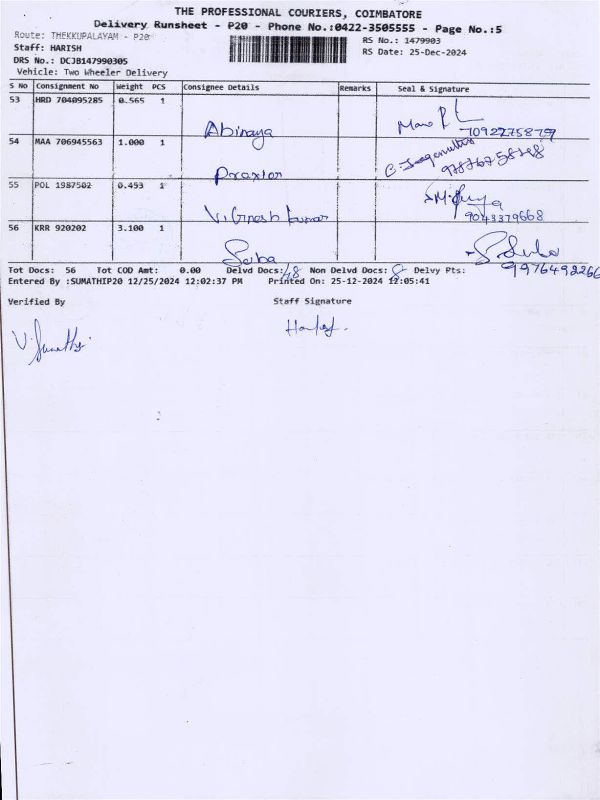 THE PROFESSIONAL COURIERS, COIMBATORE
Delivery Runsheet - P20 - Phone No.:0422-3505555 - Page No.:5
Route: THEKKUPALAYAM - P20
RS No.: 1479903
Staff: HARISH
RS Date: 25-Dec-2024
DRS No.: DCJB147990305
Vehicle: Two Wheeler Delivery
S No Consignment No Weight PCS Consignee Details Remarks Seal & Signature
53 HRD 704095285 0.565 1
Abinaya
54 MAA 706945563 1.000 1
55 POL 1987502 0.493 1
Vignesh kumar
9043379668
56 KRR 920202 3.100 1
Saba
Tot Docs: 56 Tot COD Amt: 0.00 Delvd Docs: 48 Non Delvd Docs: 8 Delvy Pts:
9976492266
Entered By :SUMATHIP20 12/25/2024 12:02:37 PM Printed On: 25-12-2024 12:05:41
Verified By Staff Signature